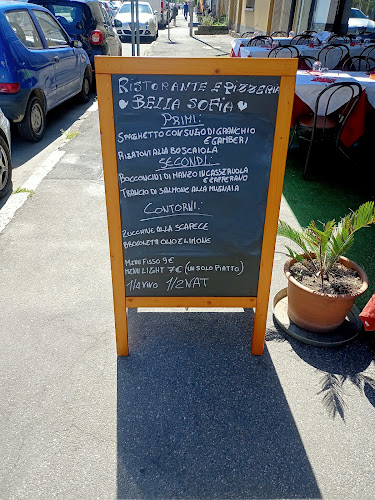 RISTORANTE E PIZZERIA
BELLA SOFIA
PRIMI:
SPAGHETTO CON SUGO DI GRANCHIO
E GAMBERI
RIGATONI ALLA BOSCAIOLA
SECONDI:
BOCCONCINI DI MANZO IN CASSERUOLA
E CAFFERAVO
TRANCIO DI SALMONE ALLA MUGNAIA
CONTORNI:
ZUCCHINE ALLA SCAPECE
BROCOLETTI OLIO E LIMONE
MENU FISSO 9€
MENU LIGHT 7€ (UN SOLO PIATTO)
1/4 VINO 1/2 NAT